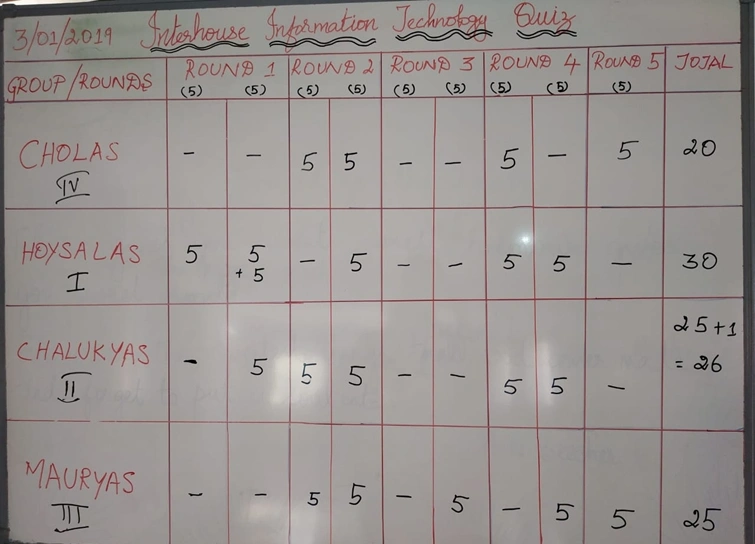 3/01/2019 Interhouse Information Technology Quiz
GROUP/ROUNDS ROUND 1 ROUND 2 ROUND 3 ROUND 4 ROUND 5 TOTAL
(5) (5) (5) (5) (5) (5) (5) (5) (5)
CHOLAS - - 5 5 - - 5 - 5 20
IV
HOYSALAS 5 5 - 5 - - 5 5 - 30
I +5
25+1
CHALUKYAS - 5 5 5 - - 5 5 - = 26
II
MAURYAS - - 5 5 - 5 - 5 5 25
III